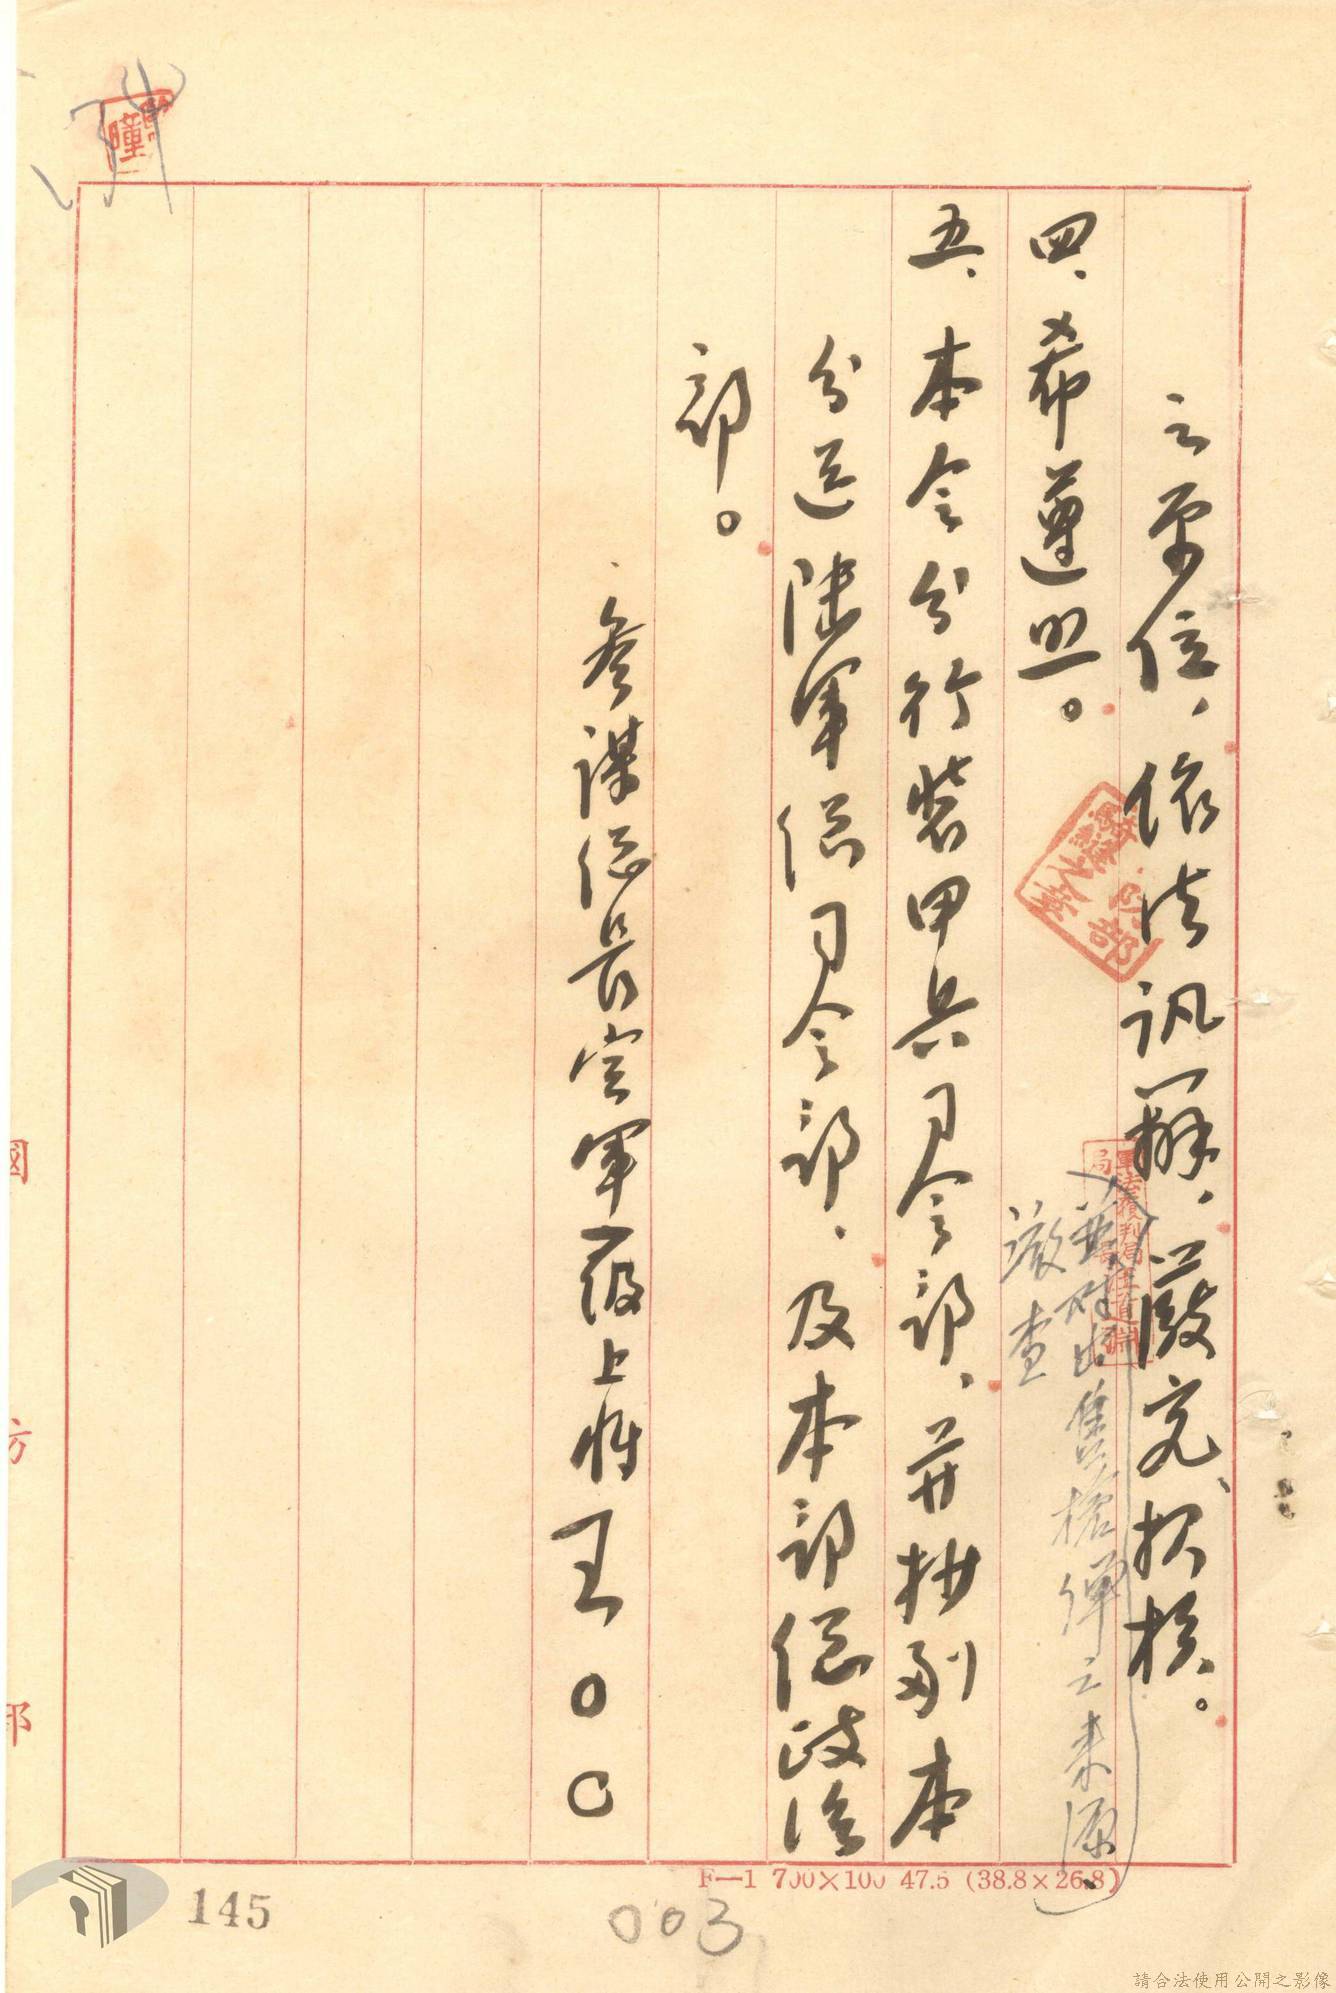 之單位，依法訊辦，嚴究報核。
並對出售槍彈之來源
澈查
四、希遵照。
五、本令分行裝甲兵司令部，并抄副本
分送陸軍總司令部，及本部總政治
部。
參謀總長官軍一級上將王〇〇
國防部
騎縫之章
軍法覆判局
局長汪道淵
國 防 部
F—1 700×100 47.5 (38.8×26.8)
145
003
請合法使用公開之影像